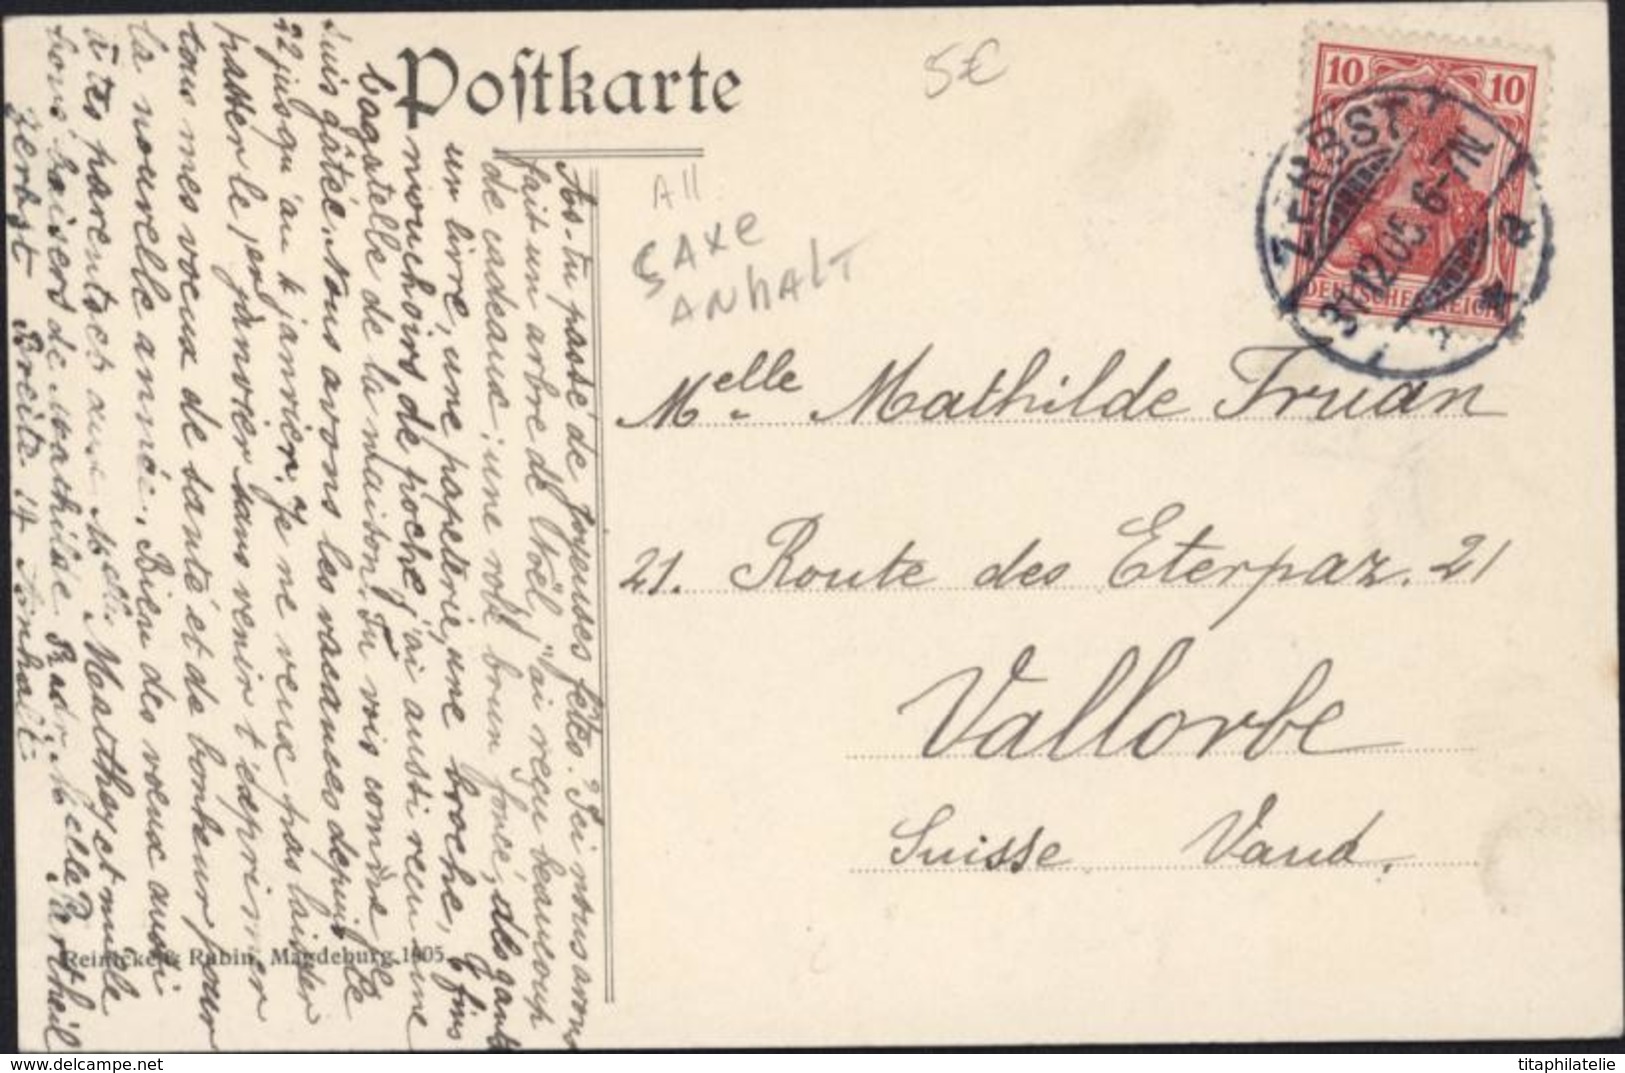 Postkarte
5€
All
SAXE
ANHALT
10 10
DEUTSCHES REICH
ZERBST
31.12.05. 6-7N.
a
Melle Mathilde Truan
21. Route des Eterpaz. 21
Vallorbe
Suisse Vaud.
As-tu passé de joyeuses fêtes? Ici nous avons
fait un arbre de Noël, j'ai reçu beaucoup
de cadeaux; une robe brun foncé, des gants
un livre, une papeterie, une broche, 6 fins
mouchoirs de poche, j'ai aussi reçu une
bagatelle de la maison. Tu vois comme je
suis gâtée. Nous avons les vacances depuis le
22 jusqu'au 4 janvier. Je ne veux pas laisser
passer le 1er janvier sans venir t'exprimer
tous mes voeux de santé et de bonheur pour
la nouvelle année. Bien des voeux aussi
à tes parents et aux Melles Matthey et mille
bons baisers de Mathilde
Melle Partheil
Zerbst Breite 14 Anhalt.
Reinicke & Rubin, Magdeburg. 1905.
www.delcampe.net
titaphilatelie